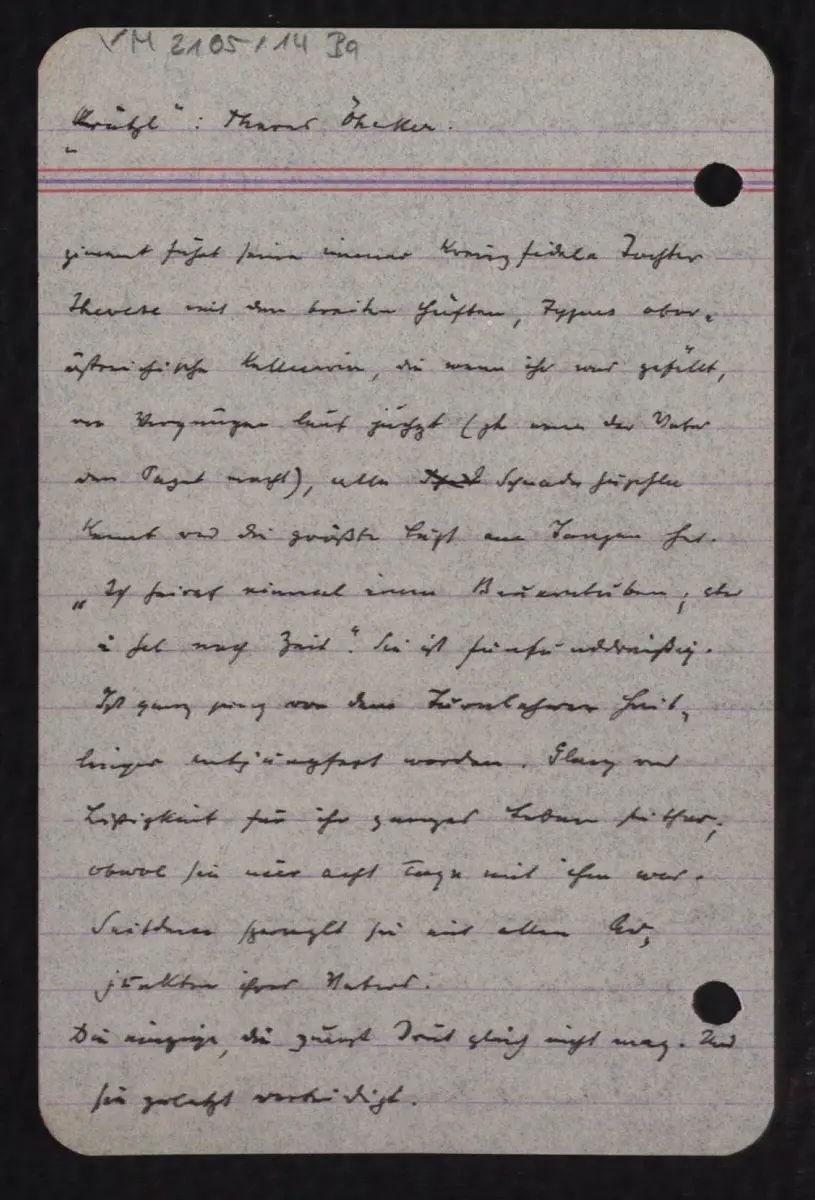 VM 2105/14 Ba
"Krützl": Therese
führt seine immer kreuzfidele Tochter
Therese mit den breiten Hüften, Typus ober-
östreichische Kellnerin, die wenn ihr was gefällt,
vor Vergnügen laut juchzt (zb wenn der Vater
den macht), alle Schnaderhüpfln
kennt und die größte Lust am Tanzen hat.
"Ich heirat einmal einen Bauernbuben, aber
i hab noch Zeit". Sie ist fünfunddreißig.
Ist ganz jung von dem Turnlehrer Heit-
linger entjungfert worden. Glanz und
für ihr ganzes Leben seither,
obwol sie nur acht Tage mit ihm war.
Seitdem sie mit allen Ad-
junkten ihres Vaters.
Die einzige, die zuerst gleich nicht mag. Und
sie zuletzt verteidigt.